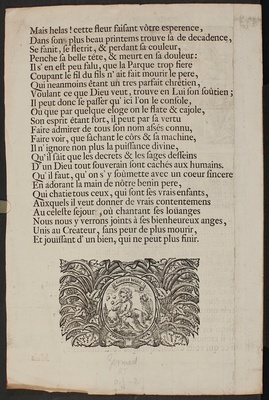 Mais helas! cette fleur faisant vôtre esperence,
Dans sons plus beau printems trouve la de decadence,
Se fanit, se fletrit, & perdant sa couleur,
Penche sa belle téte, & meurt en sa douleur:
Il s'en est peu falu, que la Parque trop fiere
Coupant le fil du fils n'ait fait mourir le pere,
Qui neanmoins étant un tres parfait chrétien,
Voulant ce que Dieu veut, trouve en Lui son soûtien;
Il peut donc se passer qu'ici l'on le console,
Où que par quelque eloge on le flate & cajole,
Son esprit étant fort, il peut par sa vertu
Faire admirer de tous son nom assés connu,
Faire voir, que sâchant le côrs & sa machine,
Il n'ignore non plus la puissance divine,
Qu'il sait que les decrets & les sages desseins
D'un Dieu tout souverain sont cachés aux humains.
Qu'il faut, qu'on s'y soûmette avec un coeur sincere
En adorant la main de nôtre benin pere,
Qui chatie tous ceux, qui sont ses vrais enfants,
Auxquels il veut donner de vrais contentemens
Au celeste sejour, où chantant ses loüanges
Nous nous y verrons joints à ses bienheureux anges,
Unis au Createur, sans peur de plus mourir,
Et jouïssant d'un bien, qui ne peut plus finir.